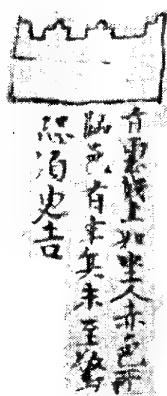 有雲城上如坐人赤色所
臨邑有卒兵未至驚
恐須臾去